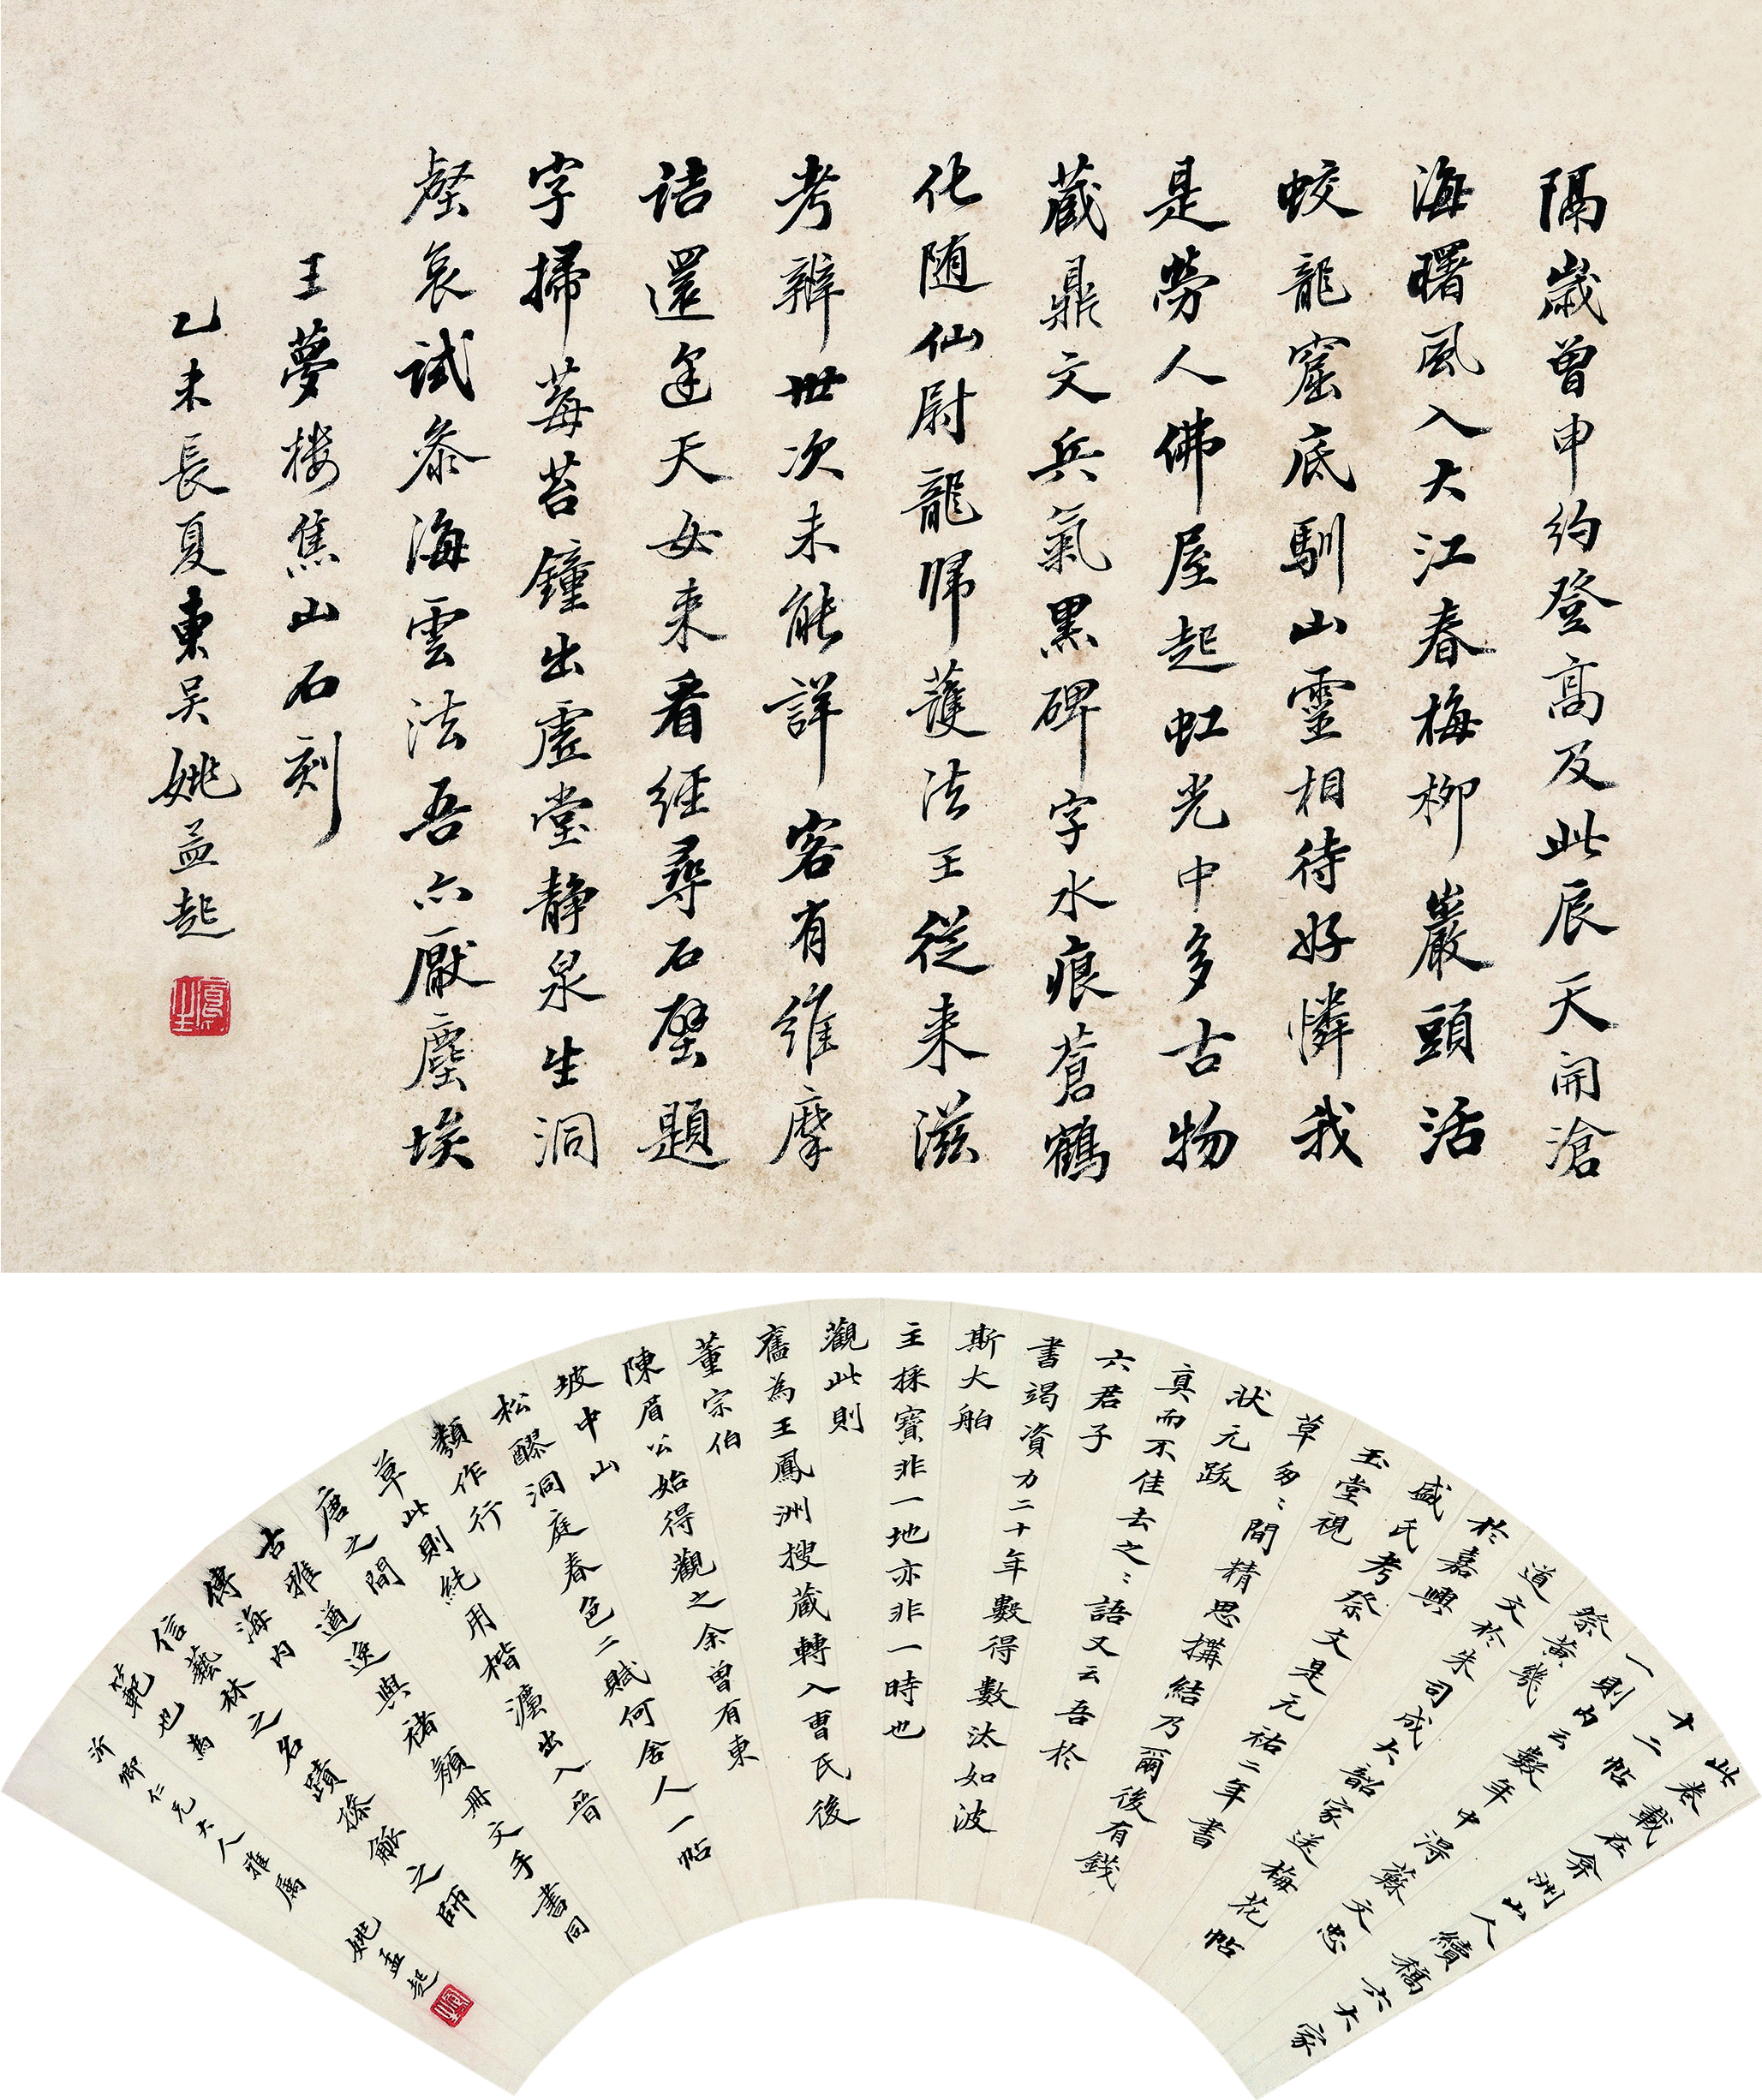 隔歲曾申約登高及此辰天開滄
海曙風入大江春梅柳巖頭活
蛟龍窟底馴山靈相待好憐我
是勞人佛屋起虹光中多古物
藏鼎文兵氣黑碑字水痕蒼鶴
化随仙尉龍歸護法王從来滋
考辨世次未能詳客有維摩
詰還邀天女来看經尋石壁題
字掃莓苔鐘出虛堂静泉生洞
壑哀試参海雲法吾亦厭塵埃
王夢楼焦山石刻
乙未長夏東吴姚孟起
此卷載在弇洲山人續稿六大家
十二帖
一則内云數年中得蘇文忠
祭黃幾
道文於朱司成大韶家送梅花帖
於嘉興
盛氏考祭文是元祐二年書
玉堂視
草匆〻間精思構結乃爾後有錢
狀元跋
真而不佳去之〻語又云吾於
六君子
書竭資力二十年數得數汰如波
斯大舶
主採寳非一地亦非一時也
觀此則
舊為王鳳洲搜藏轉入曹氏後
董宗伯
陳眉公始得觀之余曾有東
坡中山
松醪洞庭春色二賦何舍人一帖
類作行
草此則純用楷灋出入晉
唐之間
古雅遒逸與褚顏冊文手書同
傳海内
信藝林之名蹟操觚之師
範也為
沂卿仁兄大人雅属
姚孟起